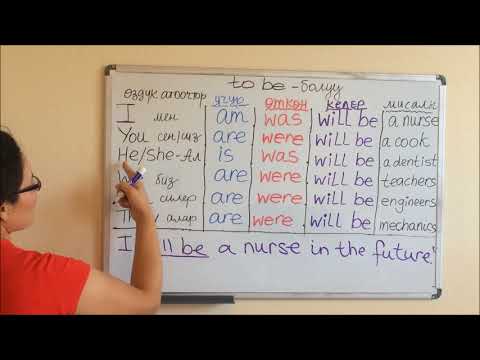 to be - болуу
өздүк ат оочтор учур өткөн келер мисалы
I мен am was will be a nurse
You сен/сиз are were will be a cook
He/She-Ал is was will be a dentist
биз are were will be teachers
силер are were will be engineers
алар are were will be mechanics
I will be a nurse in the future!